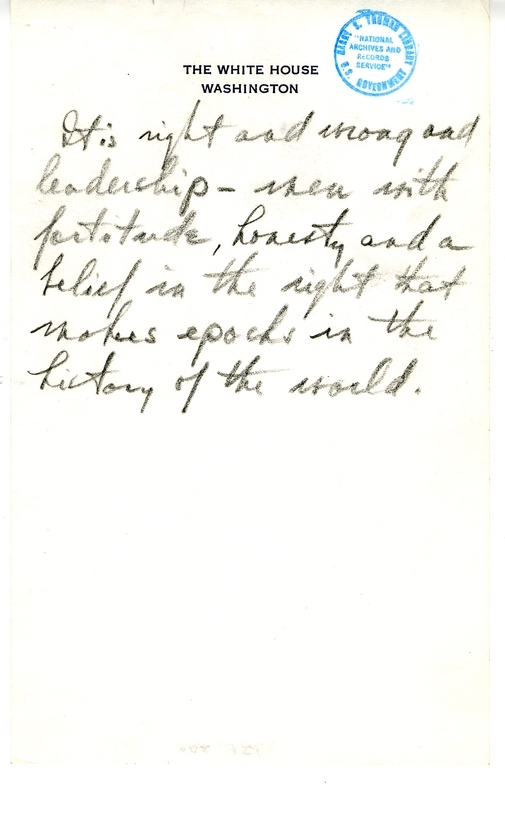 THE WHITE HOUSE
WASHINGTON
HARRY S. TRUMAN LIBRARY
"NATIONAL
ARCHIVES AND
RECORDS
SERVICE"
U.S. GOVERNMENT
It is right and wrong and
leadership - men with
fortitude, honesty and a
belief in the right that
makes epochs in the
history of the world.